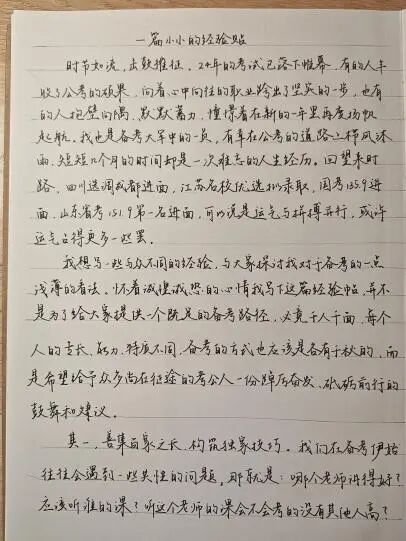 一篇小小的经验贴
时节如流,岁鼓推征。24年的考试已落下帷幕,有的人丰
收了公考的硕果,向着心中向往的职业跨出了坚实的一步,也有
的人抱壁向隅,默默蓄力,憧憬着在新的一年里再度扬帆
起航。我也是备考大军中的一员,有幸在公考的道路上栉风沐
雨,短短几个月的时间却是一次难忘的人生经历。回望来时
路,四川选调成都进面,江苏名校优选拟录取,国考135.9进
面,山东省考151.9第一名进面,可以说是运气与拼搏并行,或许
运气占得更多一些罢。
我想写一些与众不同的经验,与大家探讨我对于备考的一点
浅薄的看法。怀着诚惶诚恐的心情我写下这篇经验帖,并不
是为了给大家提供一个既定的备考路径,必竟千人千面,每个
人的专长、能力、特质不同,备考的方式也应该是各有千秋的,而
是希望给予众多尚在征途的考公人一份踔厉奋发、砥砺前行的
鼓舞和建议。
其一,善集百家之长,构筑独家技巧。我们在备考伊始
往往会遇到一些共性的问题,那就是:哪个老师讲得好?
应该听谁的课?听这个老师的课会不会考的没有其他人高?